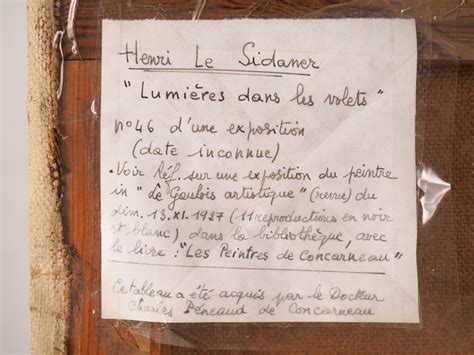 Henri Le Sidaner
"Lumières dans les volets"
n°46 d'une exposition
(date inconnue)
• Voir réf. sur une exposition du peintre
in "Le Gaulois artistique" (revue) du
dim. 13.XI.1927 (11 reproductions en noir
et blanc) dans la bibliothèque, avec
le livre : "Les Peintres de Concarneau"
Ce tableau a été acquis par le Docteur
Charles Péneaud de Concarneau